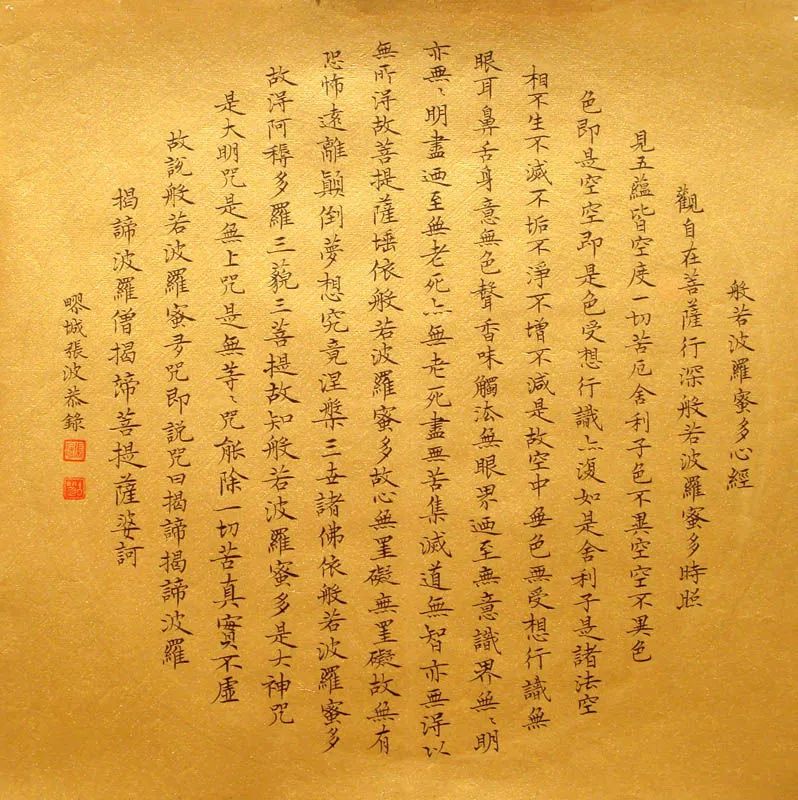 般若波羅蜜多心經
觀自在菩薩行深般若波羅蜜多時照
見五蘊皆空度一切苦厄舍利子色不異空空不異色
色即是空空即是色受想行識亦復如是舍利子是諸法空
相不生不滅不垢不淨不增不減是故空中無色無受想行識無
眼耳鼻舌身意無色聲香味觸法無眼界迺至無意識界無〻明
亦無〻明盡迺至無老死亦無老死盡無苦集滅道無智亦無得以
無所得故菩提薩埵依般若波羅蜜多故心無罣礙無罣礙故無有
恐怖遠離顛倒夢想究竟涅槃三世諸佛依般若波羅蜜多
故得阿耨多羅三藐三菩提故知般若波羅蜜多是大神咒
是大明咒是無上咒是無等〻咒能除一切苦真實不虛
故說般若波羅蜜多咒即說咒曰揭諦揭諦波羅
揭諦波羅僧揭諦菩提薩婆訶
張波恭錄